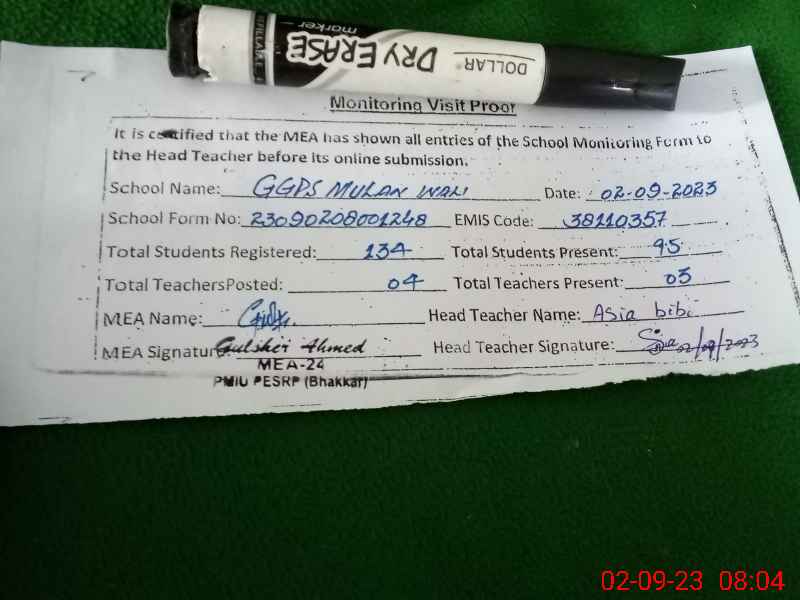 DOLLAR DRY ERASE marker REFILLABLE
Monitoring Visit Proof
It is certified that the MEA has shown all entries of the School Monitoring Form to
the Head Teacher before its online submission.
School Name: GGPS MULAN WALI Date: 02-09-2023
School Form No: 23090208001248 EMIS Code: 38110357
Total Students Registered: 134 Total Students Present: 95
Total TeachersPosted: 04 Total Teachers Present: 03
MEA Name: Head Teacher Name: Asia bibi
MEA Signature Gulsher Ahmed Head Teacher Signature: 02/09/2023
MEA-24
PMIU PESRP (Bhakkar)
02-09-23 08:04